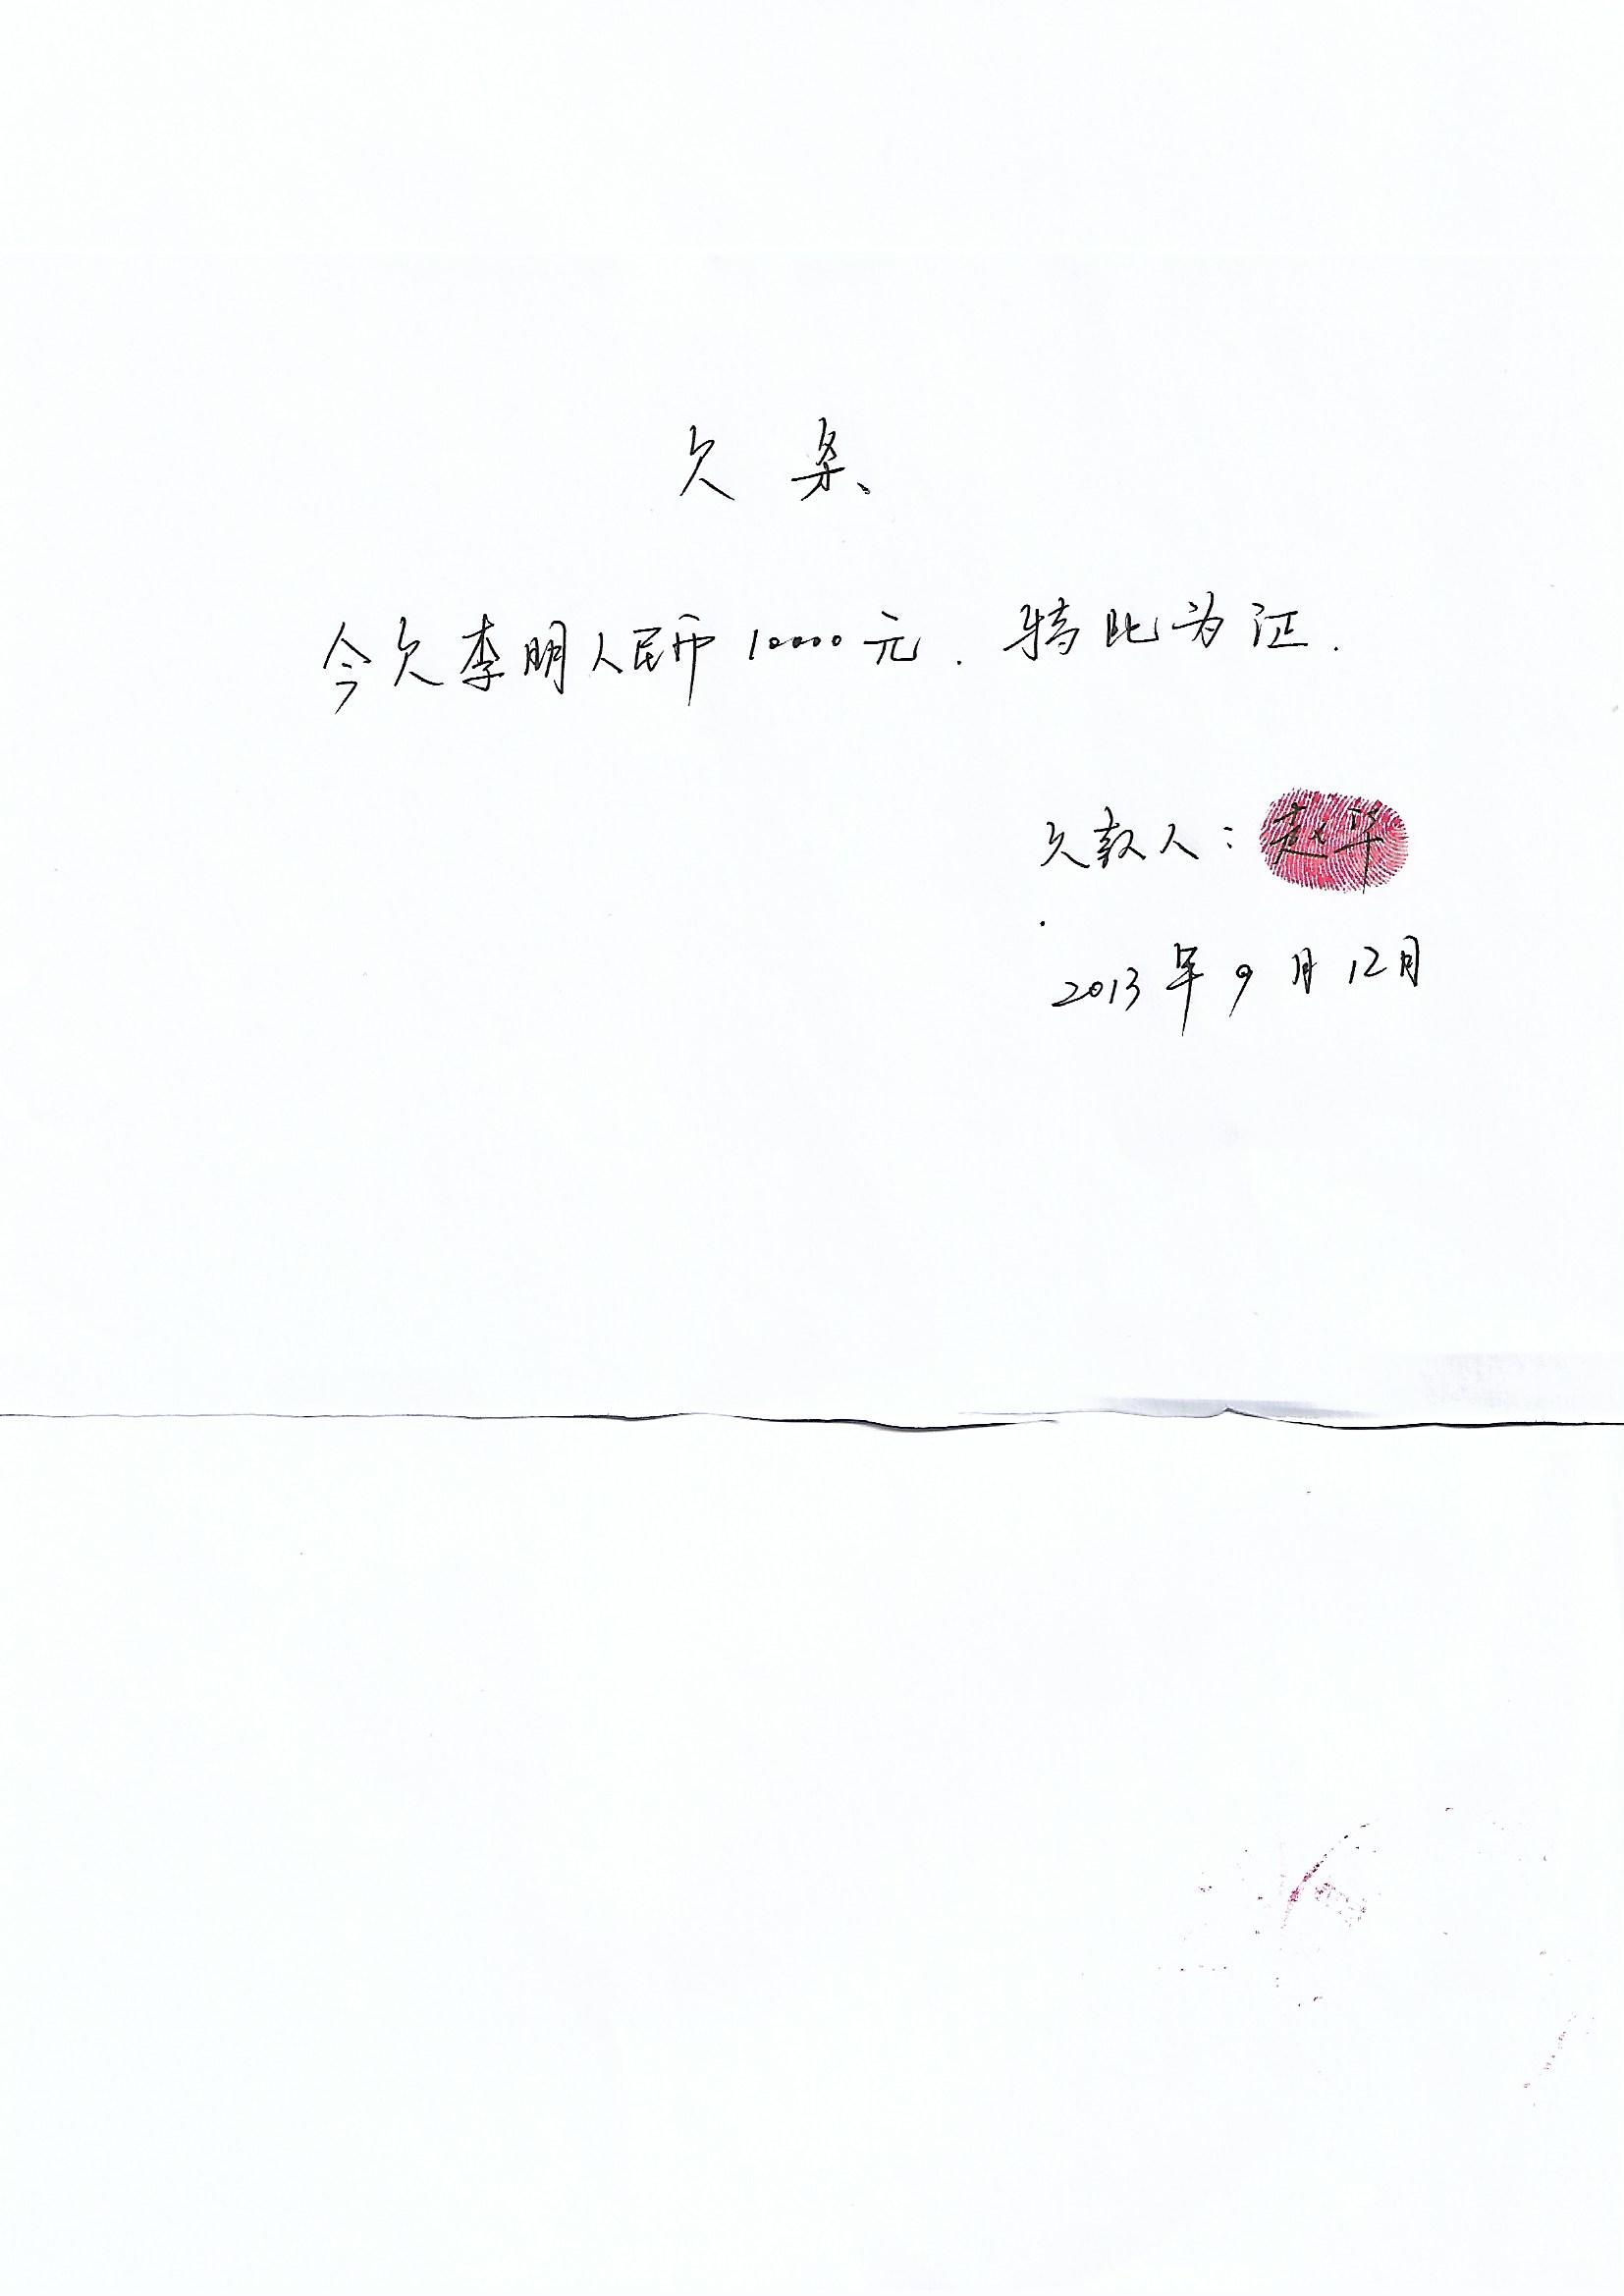 欠条
今欠李明人民币10000元.特此为证.
欠款人:赵华
2013年9月12月